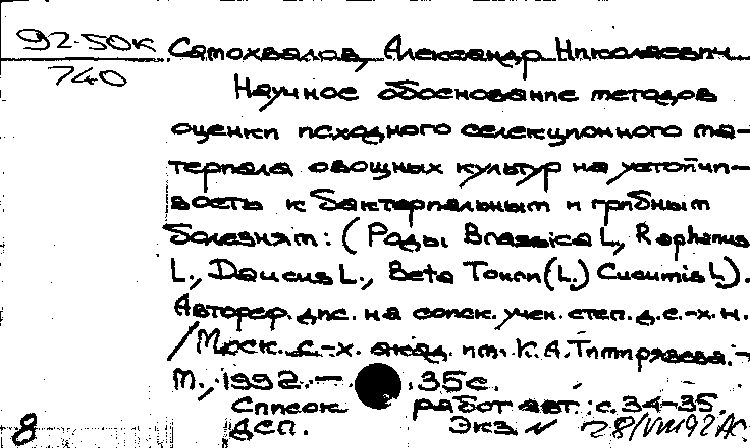 92-50к Самохвалов, Александр Николаевич
740
Научное обоснование методов
оценки исходного селекционного ма-
териала овощных культур на устойчи-
вость к бактериальным и грибным
болезням: (Роды Brassica L., Raphanus
L., Daucus L., Beta Tourn (L.) Cucumis L.).
Автореф. дис. на соиск. учен. степ. д.с.-х.н.
/Моск. с.-х. акад. им. К.А.Тимирязева.-
М., 1992.- 35с.
Список работ авт.: с.34-35.
8 ДСП. Экз N 28/VIII92 АС